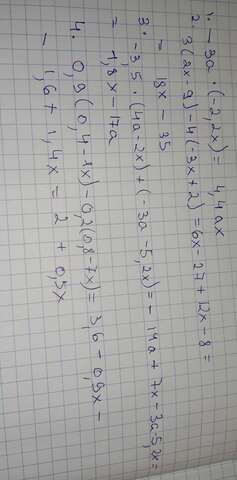 1. - 3a · (-2,2x) = 4,4ax
2 3(2x-9)-4(-3x+2)=6x-27+12x-8=
= 18x - 35
3. -3,5 · (4a-2x)+(-3a-5,2x)=-14a+7x-3a5,2x=
= 1,8x-17a
4. 0,9(0,4-1x)-0,2(0,8-7x)=3,6-0,9x-
- 1,6+1,4x = 2 + 0,5x